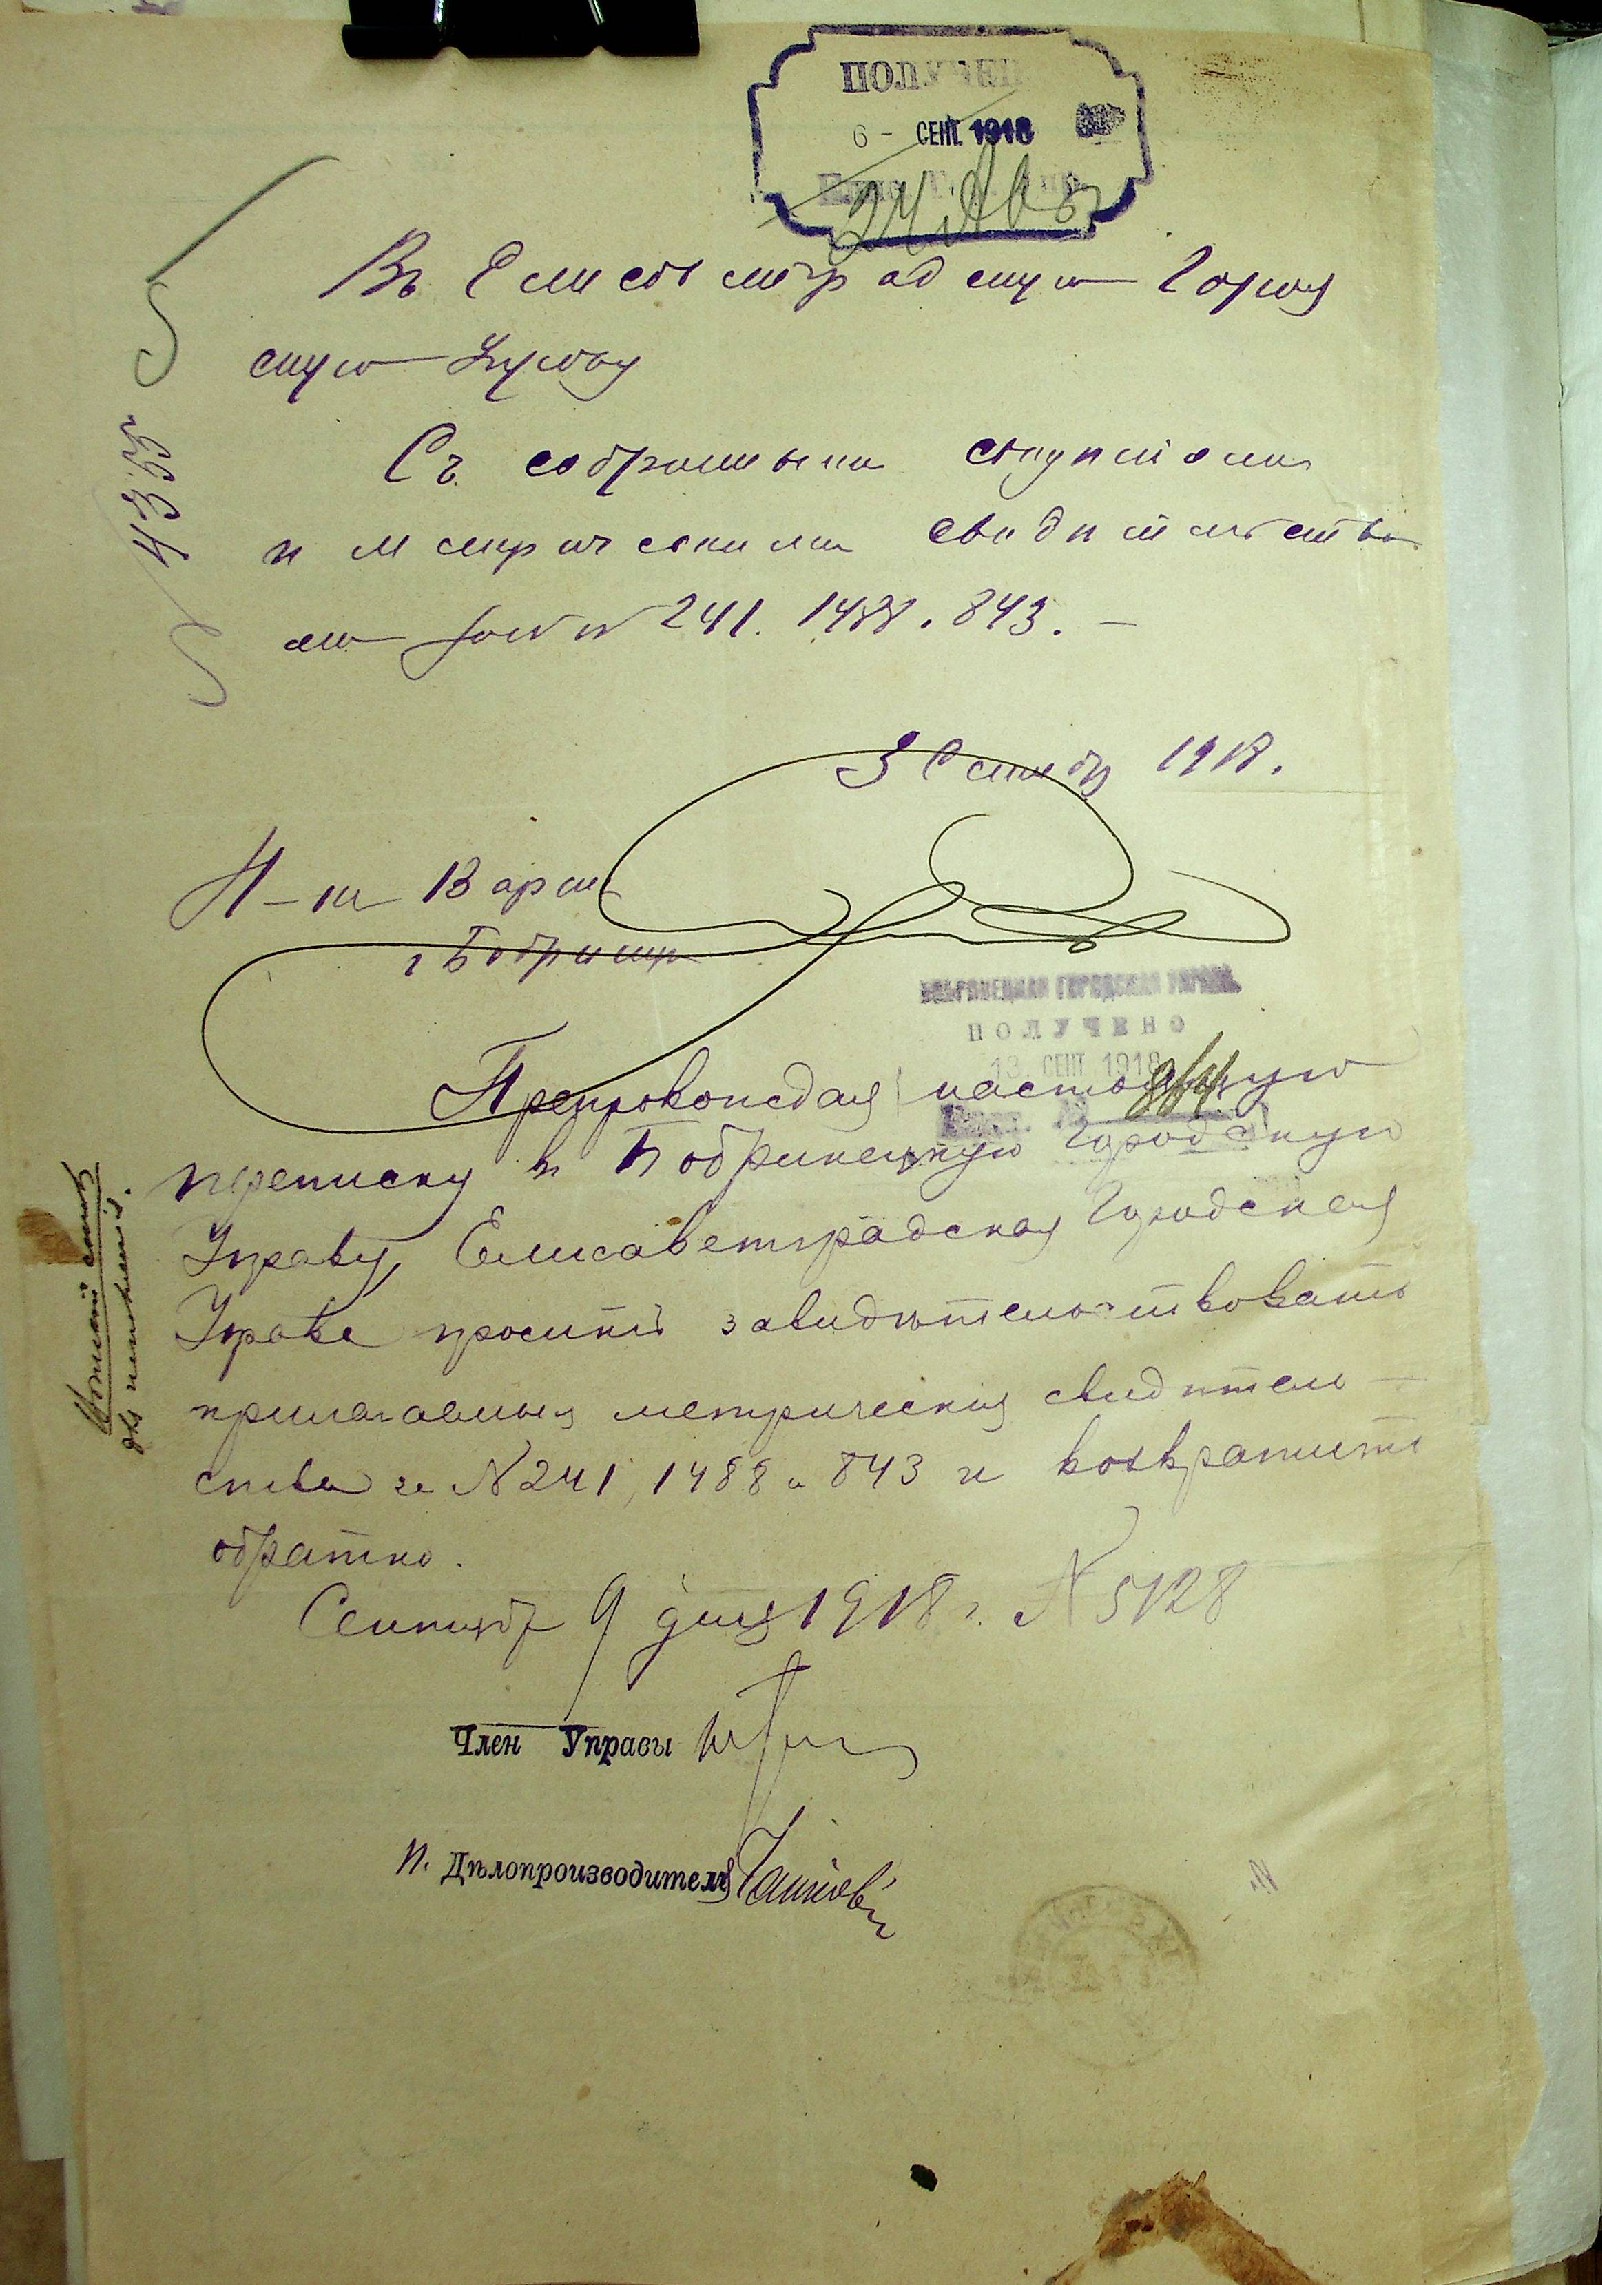 ПОЛУЧЕН
6 - СЕНТ. 1918
Въ Елисаветградскую Город
скую Управу
Съ собранными
и метрическими свидѣтельства
ми за №№ 241. 1488. 843. —
4355
3 Сентяб 1918.
Н-ик Варт
г Бобринец
БОБРИНЕЦКАЯ ГОРОДСКАЯ УПРАВА
ПОЛУЧЕНО
13 СЕНТ 1918
Препровождая настоящую
переписку в Бобринецкую Городскую
Управу, Елисаветградская Городская
Управа проситъ завидѣтельствовать
прилагаемыя метрическия свидѣтель-
ства за № 241, 1488 и 843 и возвратить
обратно.
Сентябр 9 дня 1918 г. № 5128
Член Управы
И. Дѣлопроизводителя